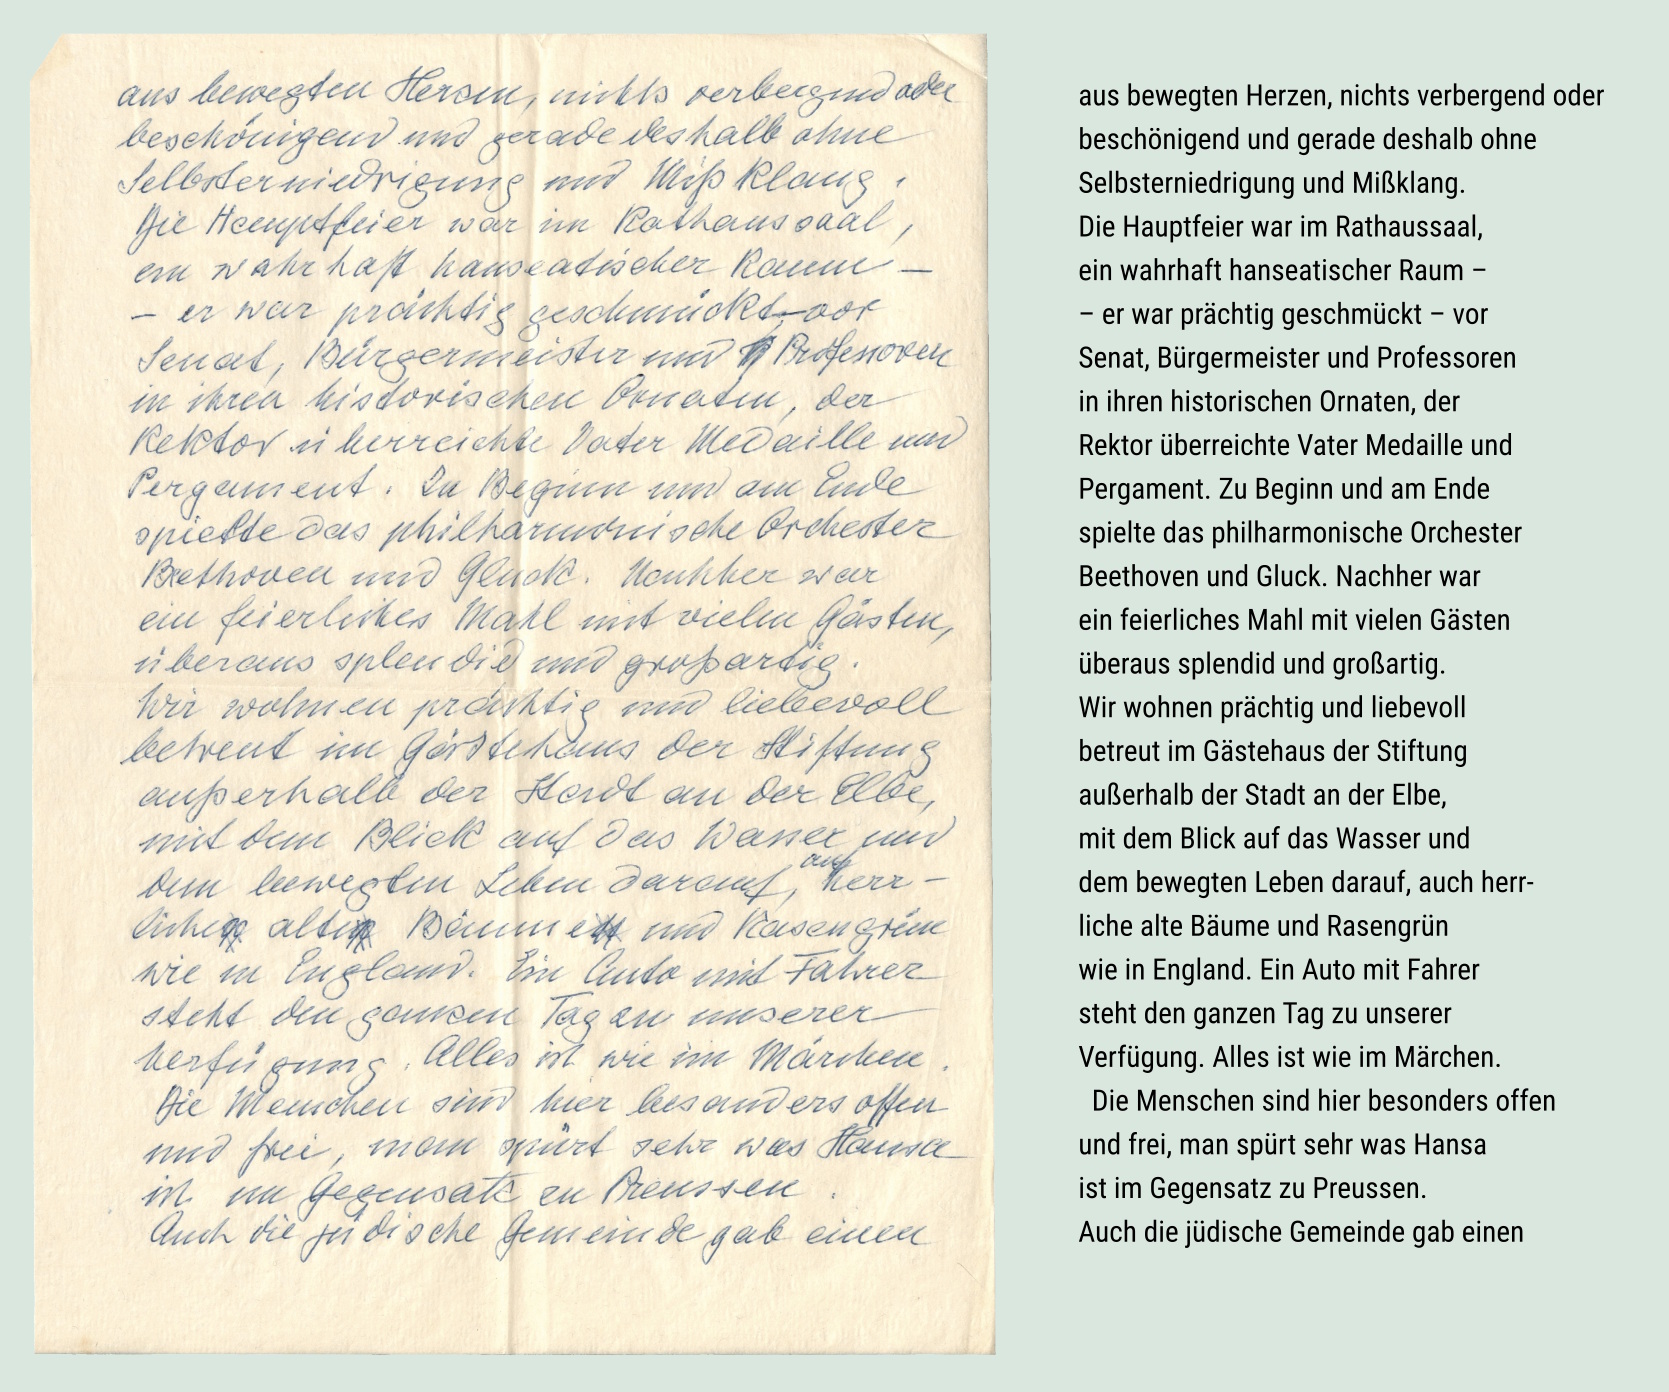 aus bewegten Herzen, nichts verbergend oder
beschönigend und gerade deshalb ohne
Selbsterniedrigung und Mißklang.
Die Hauptfeier war im Rathaussaal,
ein wahrhaft hanseatischer Raum –
– er war prächtig geschmückt – vor
Senat, Bürgermeister und Professoren
in ihren historischen Ornaten, der
Rektor überreichte Vater Medaille und
Pergament. Zu Beginn und am Ende
spielte das philharmonische Orchester
Beethoven und Gluck. Nachher war
ein feierliches Mahl mit vielen Gästen,
überaus splendid und großartig.
Wir wohnen prächtig und liebevoll
betreut im Gästehaus der Stiftung
außerhalb der Stadt an der Elbe,
mit dem Blick auf das Wasser und
dem bewegten Leben darauf, auch herr-
liche alte Bäume und Rasengrün
wie in England. Ein Auto mit Fahrer
steht den ganzen Tag zu unserer
Verfügung. Alles ist wie im Märchen.
Die Menschen sind hier besonders offen
und frei, man spürt sehr was Hansa
ist im Gegensatz zu Preussen.
Auch die jüdische Gemeinde gab einen
aus bewegten Herzen, nichts verbergend oder
beschönigend und gerade deshalb ohne
Selbsterniedrigung und Mißklang.
Die Hauptfeier war im Rathaussaal,
ein wahrhaft hanseatischer Raum –
– er war prächtig geschmückt – vor
Senat, Bürgermeister und Professoren
in ihren historischen Ornaten, der
Rektor überreichte Vater Medaille und
Pergament. Zu Beginn und am Ende
spielte das philharmonische Orchester
Beethoven und Gluck. Nachher war
ein feierliches Mahl mit vielen Gästen
überaus splendid und großartig.
Wir wohnen prächtig und liebevoll
betreut im Gästehaus der Stiftung
außerhalb der Stadt an der Elbe,
mit dem Blick auf das Wasser und
dem bewegten Leben darauf, auch herr-
liche alte Bäume und Rasengrün
wie in England. Ein Auto mit Fahrer
steht den ganzen Tag zu unserer
Verfügung. Alles ist wie im Märchen.
Die Menschen sind hier besonders offen
und frei, man spürt sehr was Hansa
ist im Gegensatz zu Preussen.
Auch die jüdische Gemeinde gab einen